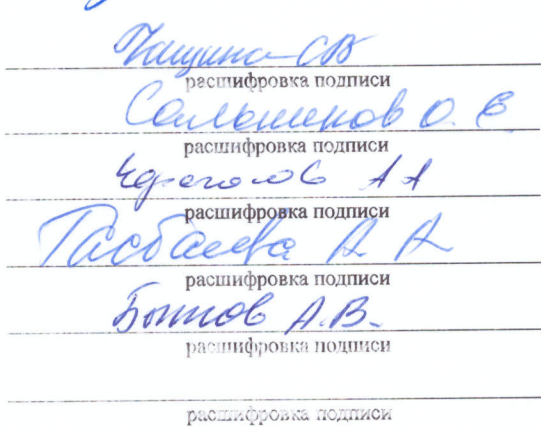 СВ
расшифровка подписи
Сальников О. Е
расшифровка подписи
А А
расшифровка подписи
Тасбаева А А
расшифровка подписи
Бытов А.В.
расшифровка подписи
расшифровка подписи